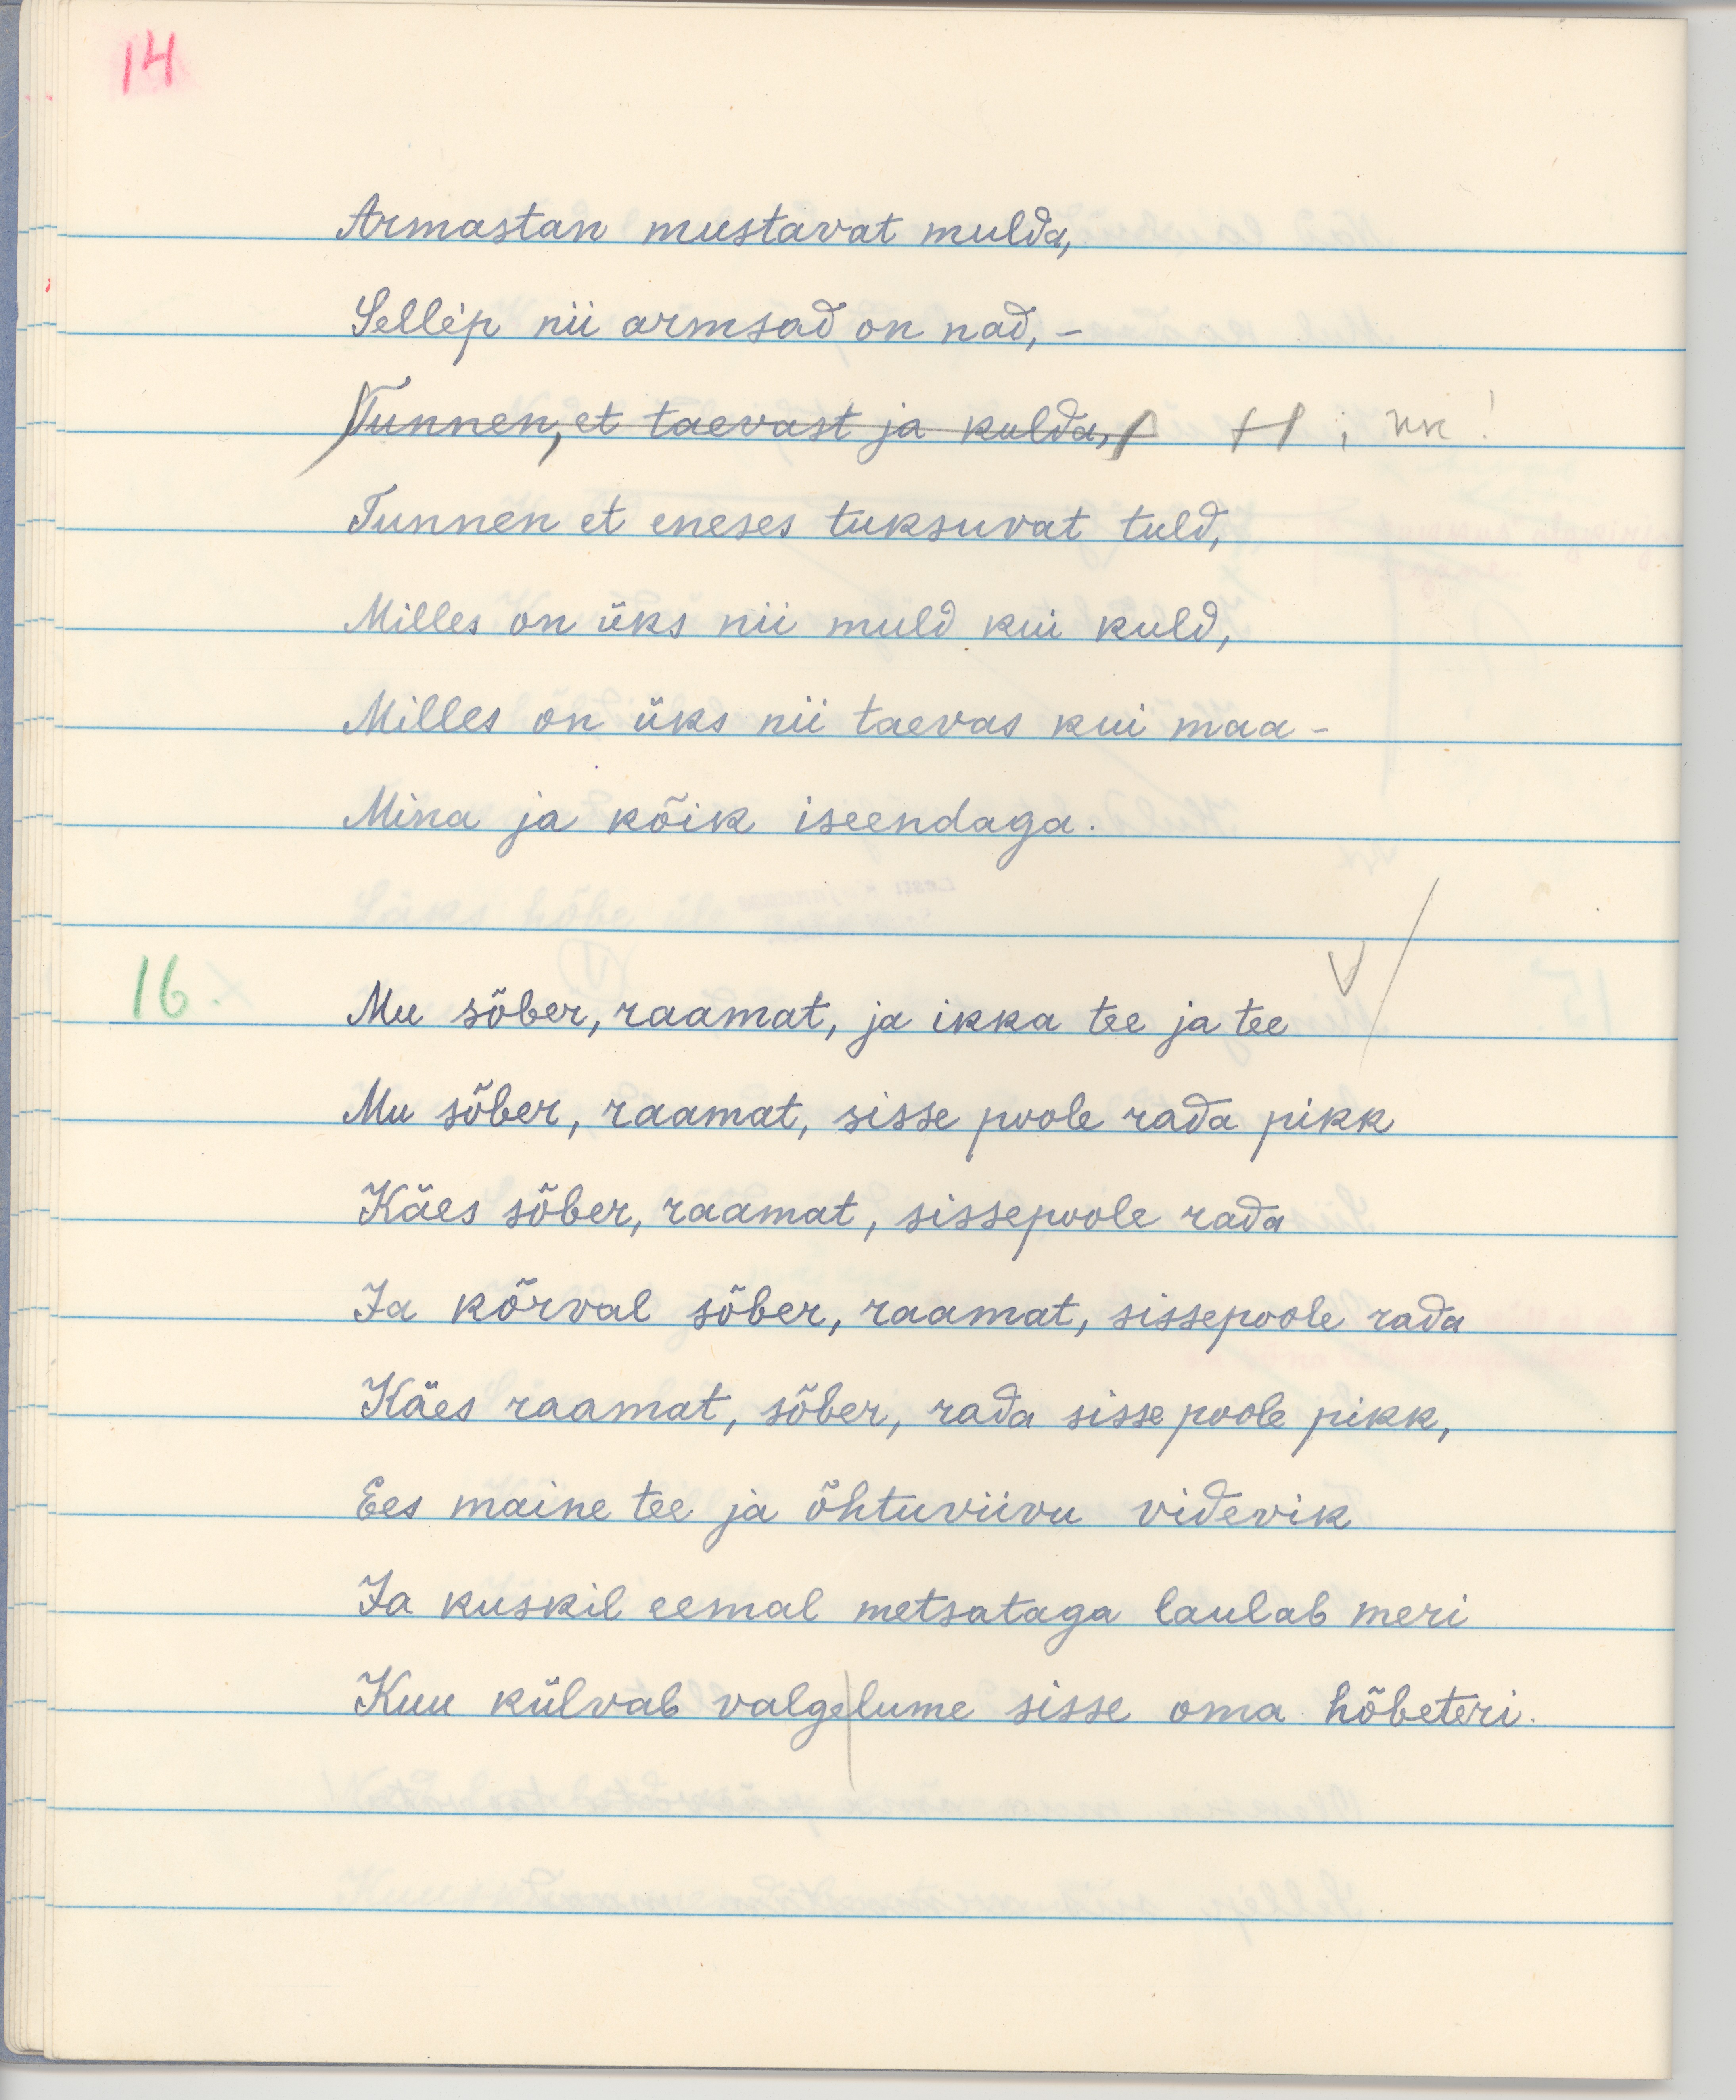 14
Armastan mustavat mulda,
Sellep nii armsad on nad, –
Tunnen, et taevast ja kulda,
Tunnen et eneses tuksuvat tuld,
Milles on üks nii muld kui kuld,
Milles on üks nii taevas kui maa –
Mina ja kõik iseendaga.
16.
Mu sõber, raamat, ja ikka tee ja tee
Mu sõber, raamat, sisse poole rada pikk
Käes sõber, raamat, sissepoole rada
Ja kõrval sõber, raamat, sissepoole rada
Käes raamat, sõber, rada sisse poole pikk,
Ees maine tee ja õhtuviivu videvik
Ja kuskil eemal metsataga laulab meri
Kuu külvab valge|lume sisse oma hõbeteri.